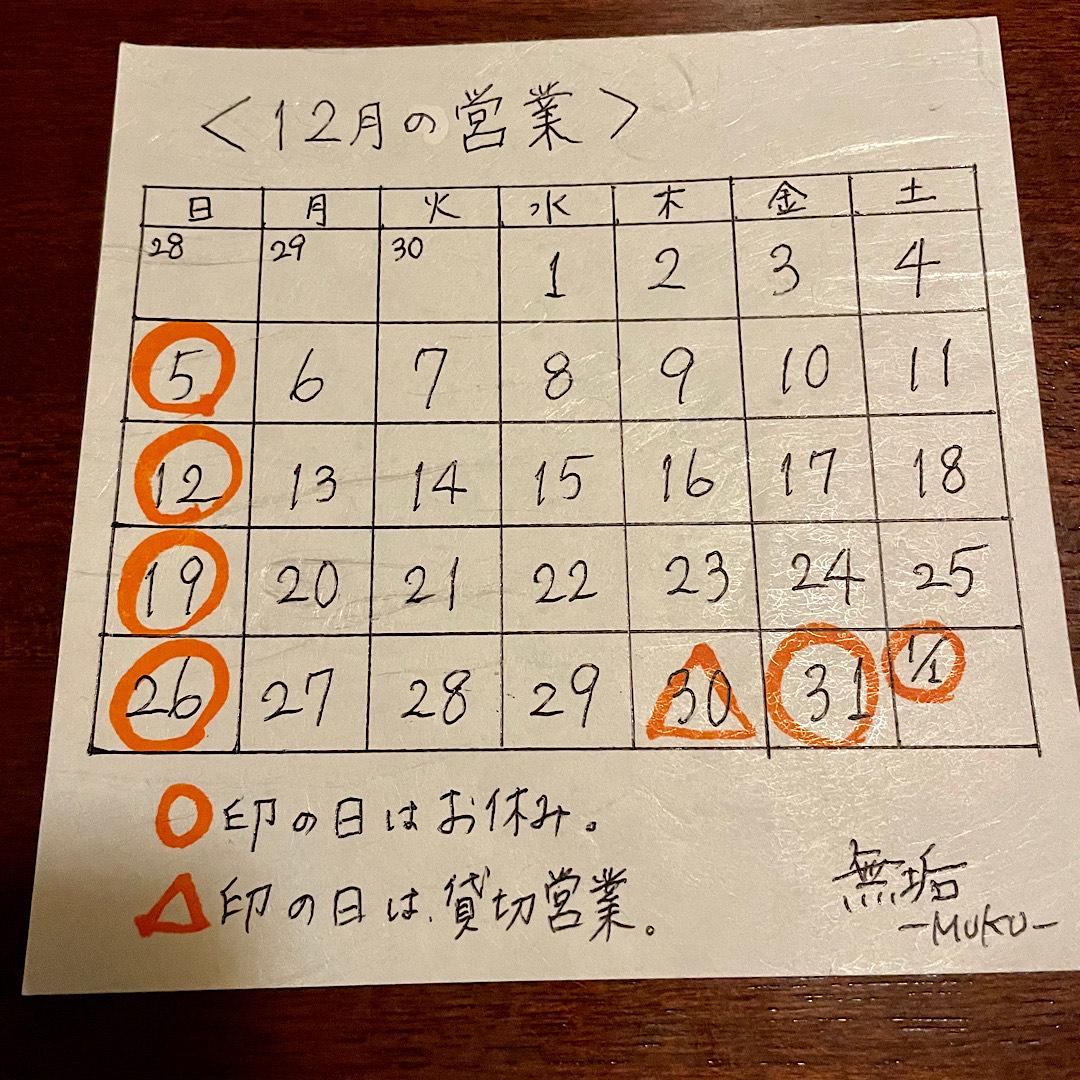 <12月の営業>
日 月 火 水 木 金 土
28 29 30 1 2 3 4
5 6 7 8 9 10 11
12 13 14 15 16 17 18
19 20 21 22 23 24 25
26 27 28 29 30 31 1/1
○印の日はお休み。
△印の日は、貸切営業。
無垢
-MUKU-